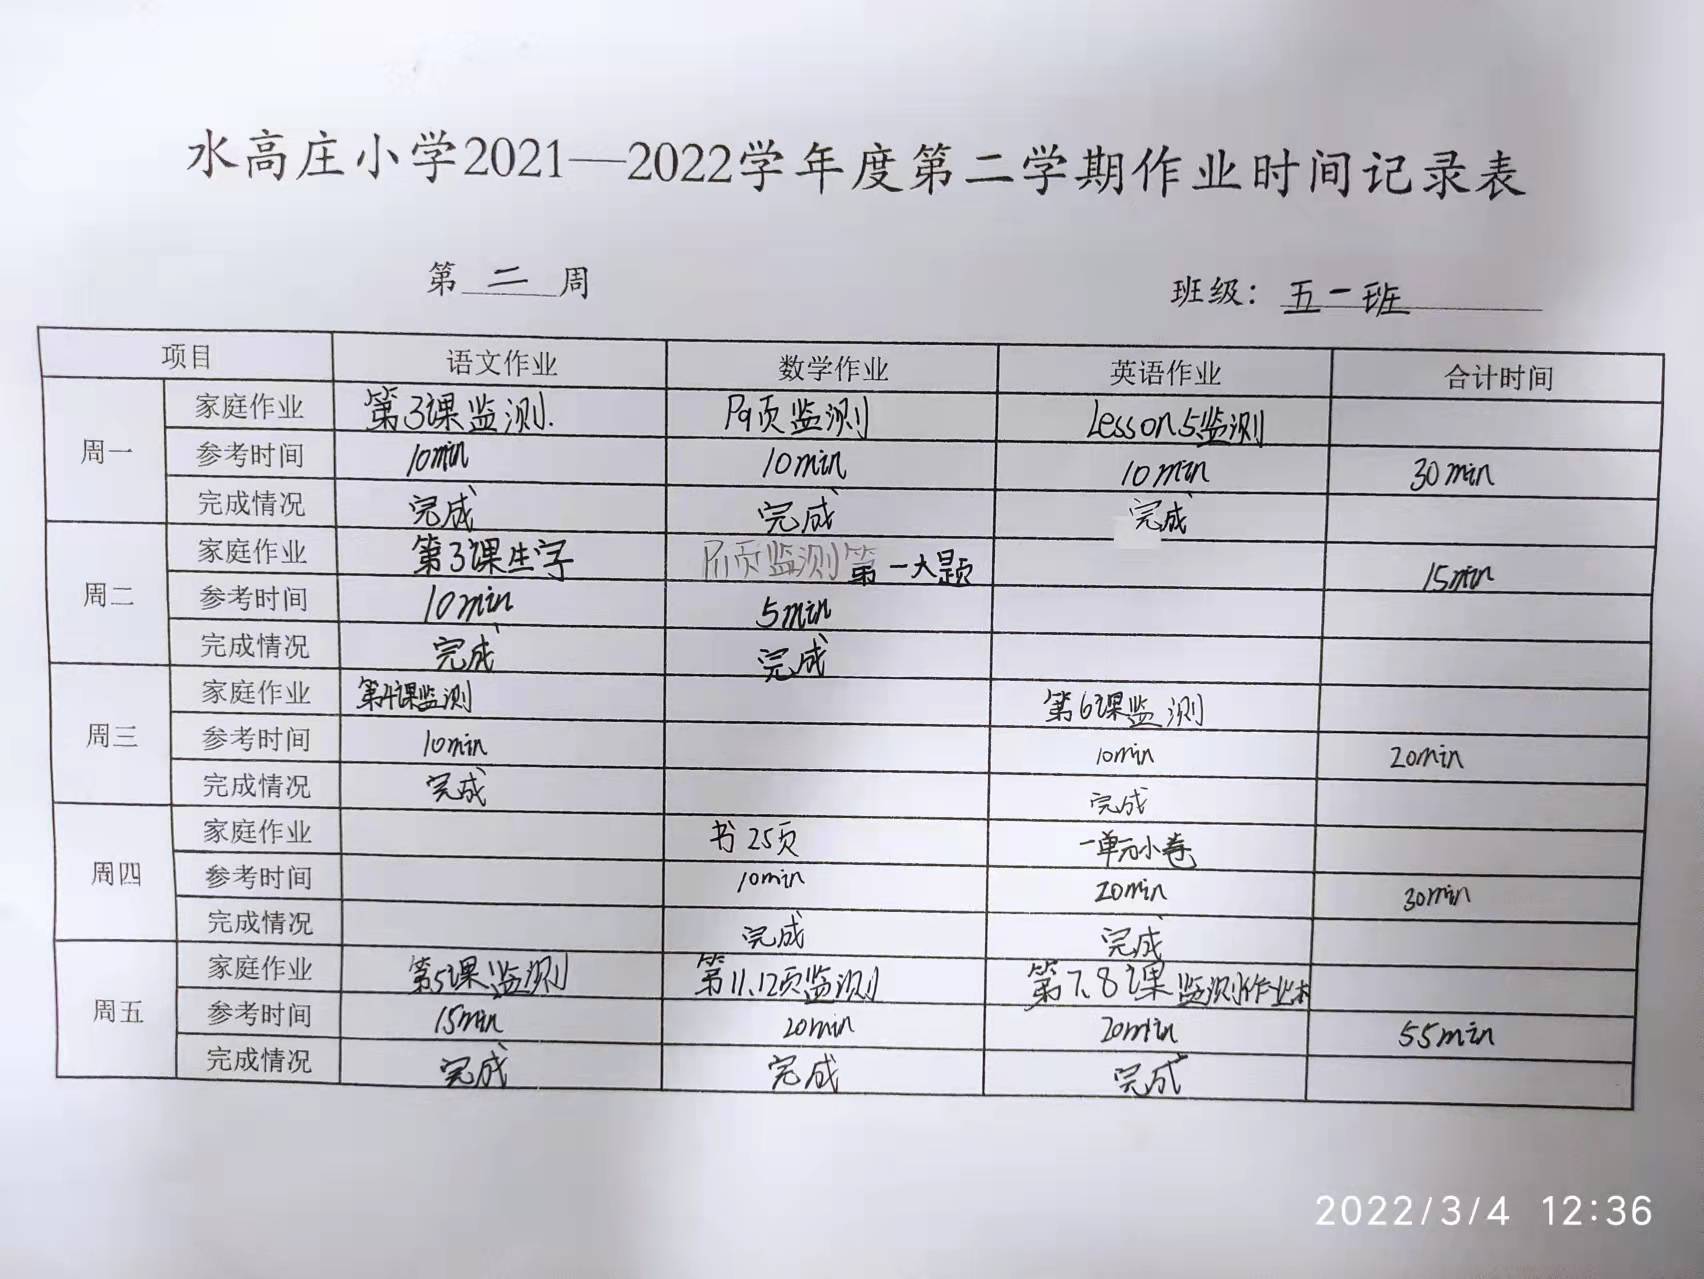 水高庄小学2021—2022学年度第二学期作业时间记录表
第 二 周 班级：五一班
项目 语文作业 数学作业 英语作业 合计时间
周一 家庭作业 第3课监测. P9页监测 Lesson5监测
参考时间 10min 10min 10min 30min
完成情况 完成 完成 完成
周二 家庭作业 第3课生字 P11页监测第一大题 15min
参考时间 10min 5min
完成情况 完成 完成
周三 家庭作业 第4课监测 第6课监测
参考时间 10min 10min 20min
完成情况 完成 完成
周四 家庭作业 书25页 一单元小卷
参考时间 10min 20min 30min
完成情况 完成 完成
周五 家庭作业 第5课监测 第11、12页监测 第7、8课监测作业本
参考时间 15min 20min 20min 55min
完成情况 完成 完成 完成
2022/3/4 12:36